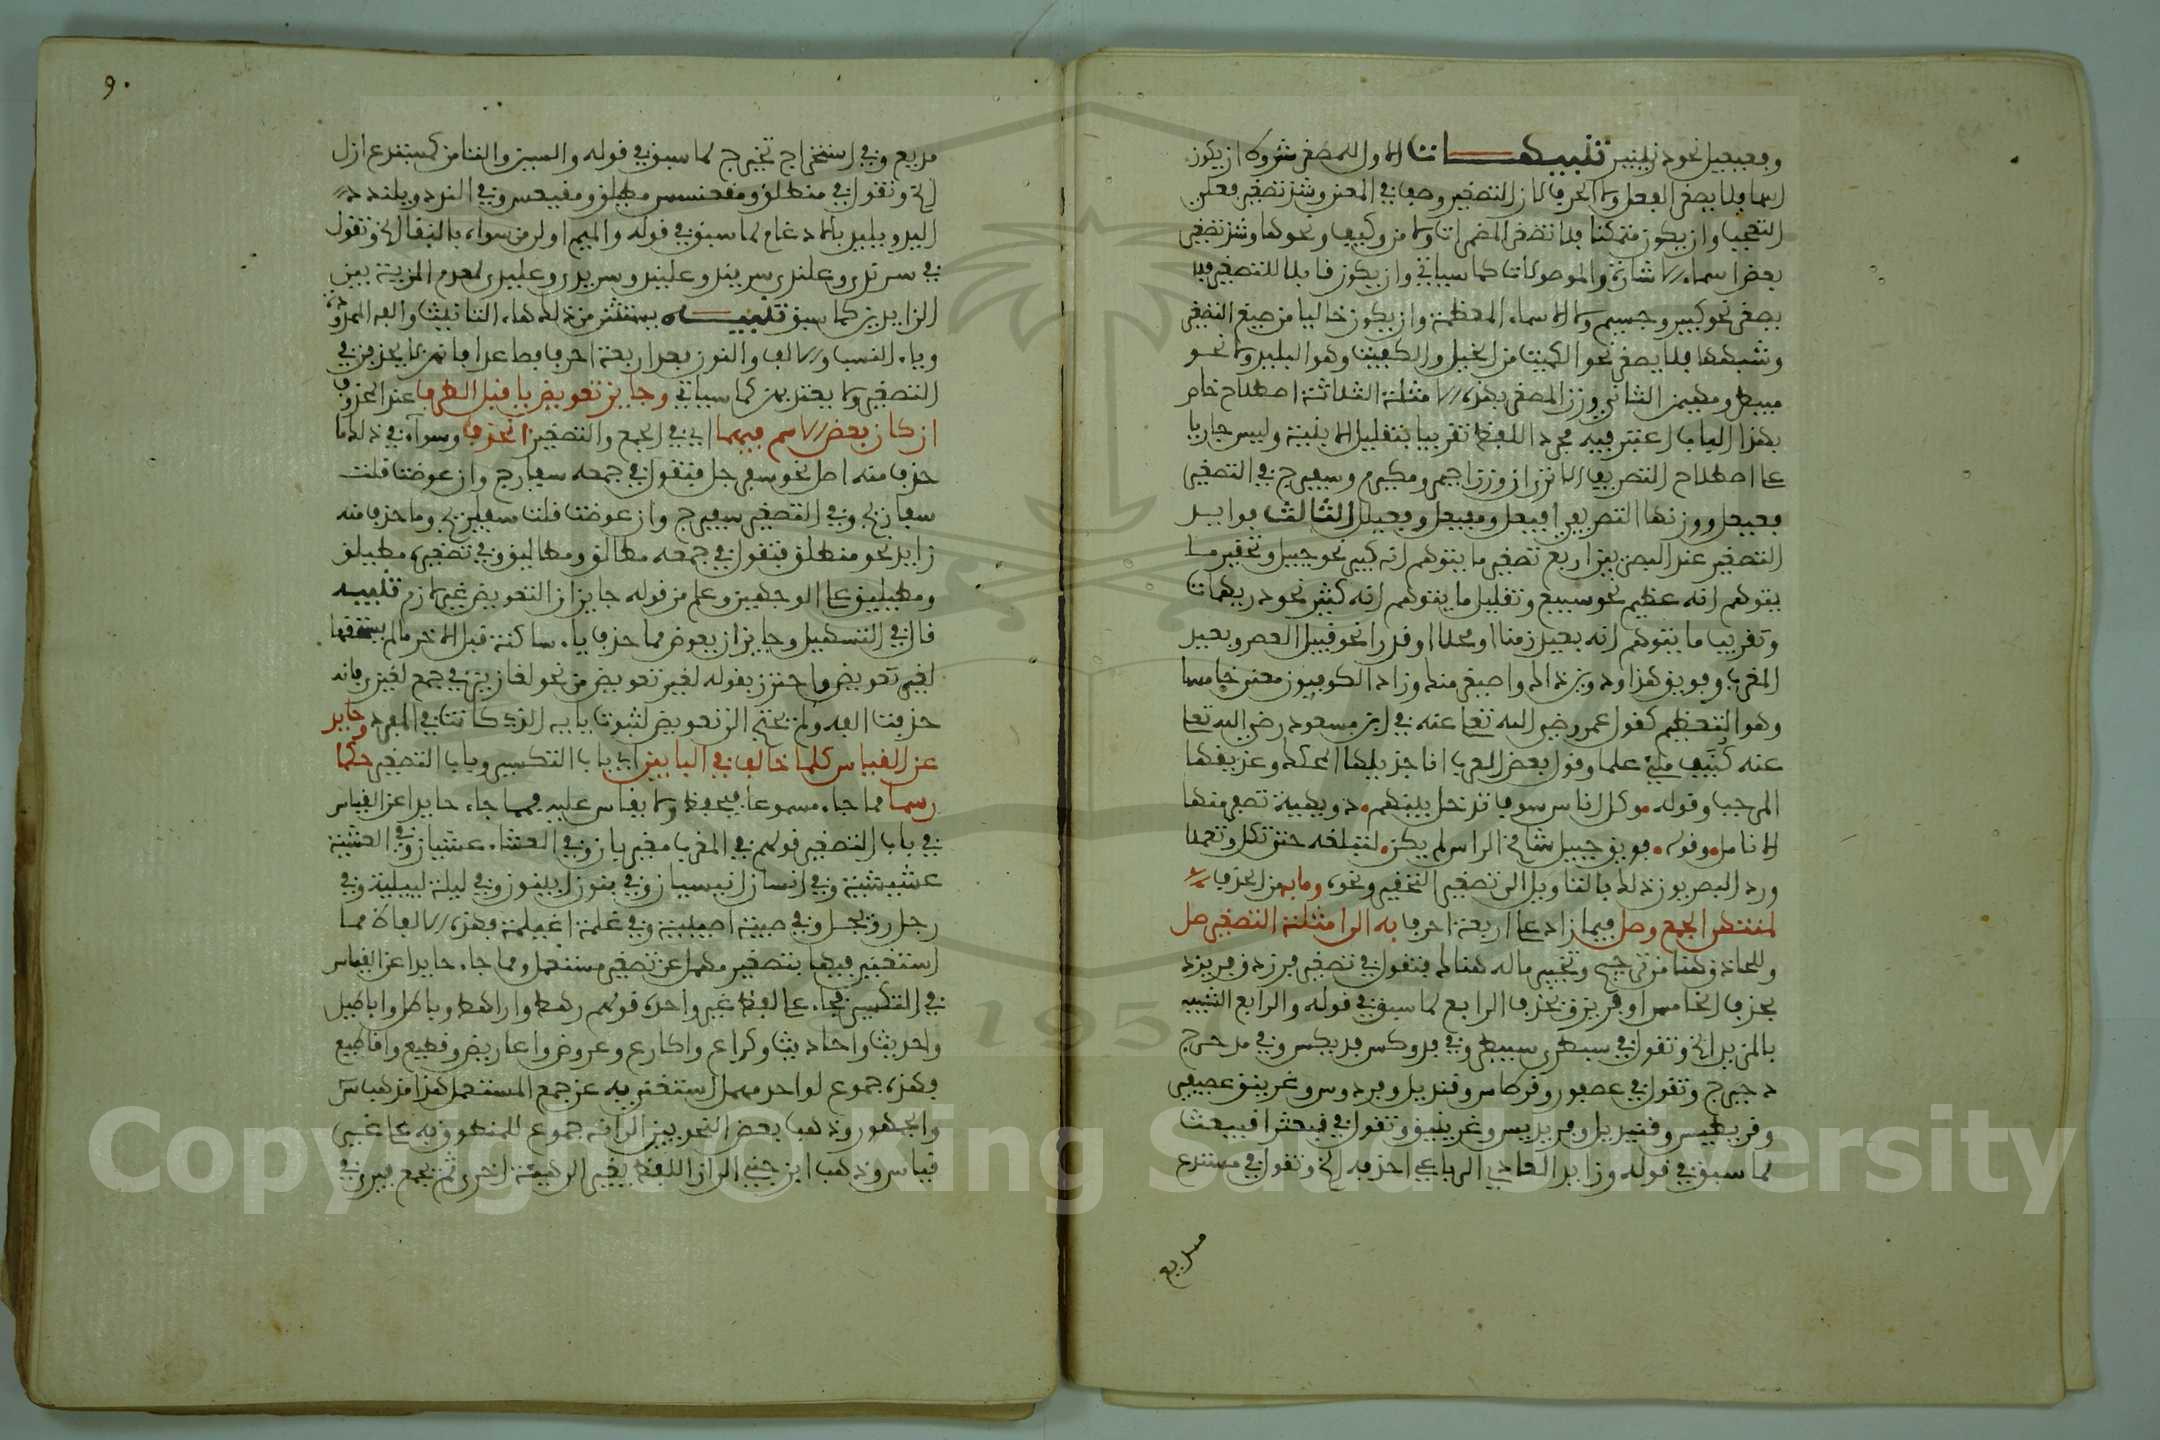 وفعيعيل نحو دنينير تنبيهات الاول للمصغر شروط ان يكون
اسما فلا يصغر الفعل ولا الحرف لان التصغير وصف في المعنى وشذ تصغير فعل
التعجب وان يكون متمكنا فلا تصغر المضمرات ولا من وكيف ونحوها وشذ تصغير
بعض اسماء الاشارة والموصولات كما سياتي وان يكون قابلا للتصغير فلا
يصغر نحو كبير وجسيم ولا الاسماء المعظمة وان يكون خاليا من صيغ التصغير
وشبهها فلا يصغر نحو الكميت من الخيل والكعيت وهو البلبل ولا نحو
مبيطر ومهيمن الثاني وزن المصغر بهذه الامثلة الثلاثة اصطلاح خاص
بهذا الباب اعتبر فيه مجرد اللفظ تقريبا بتقليل الابنية وليس جاريا
على اصطلاح التصريف الا ترى ان وزن احيمر ومكيرم وسفيرج في التصغير
فعيعل ووزنها التصريفي افيعل ومفيعل وفعيلل الثالث فوايد
التصغير عند البصريين اربع تصغير ما يتوهم انه كبير نحو جبيل وتحقير ما
يتوهم انه عظيم نحو سبيع وتقليل ما يتوهم انه كثير نحو دريهمات
وتقريب ما يتوهم انه بعيد زمنا او محلا او قدرا نحو قبيل العصر وبعيد
المغرب وفويق هذا ودوين ذاك واصيغر منك وزاد الكوفيون معنى خامسا
وهو التعظيم كقول عمر رضي الله تعالى عنه في ابن مسعود رضي الله تعالى
عنه كنيف ملئ علما وقول بعض العرب انا جذيلها المحكك وعذيقها
المرجب وقوله وكل اناس سوف تدخل بينهم دويهية تصفر منها
الانامل وقوله فويق جبيل شامخ الراس لم يكن لتبلغه حتى تكل وتعملا
ورد البصريون ذلك بالتاويل الى تصغير التحقير ونحوه وما به من الحذف
لمنتهى الجمع وصل فيما زاد على اربعة احرف به الى امثلة التصغير صل
وللحاذف هنا من ترجيح وتخيير ما له هناك فتقول في تصغير فرزدق فريزد
بحذف الخامس او فريزق بحذف الرابع لما سبق في قوله والرابع الشبيه
بالمزيد الخ وتقول في سبطرى سبيطر وفي فدوكس فديكس وفي مدحرج
دحيرج وتقول في عصفور وقرطاس وقنديل وفردوس وغرنيق عصيفير
وقريطيس وقنيديل وفريديس وغرينيق وتقول في قبعثرى قبيعث
لما سبق في قوله وزايد العادي الرباعي احذفه الخ وتقول في مستدع
مديع
٩٠
مديع وفي استخراج تخيرج لما سبق في قوله والسين والتا من كمستدع ازل
الخ وتقول في منطلق ومقعنسس مطيلق ومقيعس وفي الندد ويلندد
اليد ويليد بالادغام لما سبق في قوله والميم اولى من سواه بالبقا الخ وتقول
في سرندى وعلندى سريند وعليند وسريدي وعليدي لعدم المزية بين
الزايدين كما سبق تنبيه يستثنى من ذلك هاء التانيث والفه الممدودة
وياء النسب والالف والنون بعد اربعة احرف فصاعدا فانهن لا يحذفن في
التصغير ولا يعتد بهن كما سياتي وجايز تعويض يا قبل الطرف عند الحذوف
ان كان بعض الاسم فيهما اي في الجمع والتصغير انحذف وسواء في ذلك ما
حذف منه اصل نحو سفرجل فتقول في جمعه سفارج وان عوضت قلت
سفاريج وفي التصغير سفيرج وان عوضت قلت سفيريج وما حذف منه
زايد نحو منطلق فتقول في جمعه مطالق ومطاليق وفي تصغيره مطيلق
ومطيليق على الوجهين وعلم من قوله جايز ان التعويض غير لازم تنبيه
قال في التسهيل وجايز ان يعوض مما حذف ياء ساكنة قبل الاخر ما لم يستحقها
لغير تعويض واحترز بقوله لغير تعويض من نحو لغاغيز في جمع لغيزى فانه
حذفت الفه ولم يحتج الى تعويض لثبوت يايه التي كانت في المفرد وحايد
عن القياس كلما خالف في البابين اي باب التكسير وباب التصغير حكما
رسما مما جاء مسموعا فيحفظ ولا يقاس عليه فمما جاء حايدا عن القياس
في باب التصغير قولهم في المغرب مغيربان وفي العشاء عشيان وفي العشية
عشيشية وفي انسان انيسيان وفي بنون ابينون وفي ليلة لييلية وفي
رجل رويجل وفي صبية اصيبية وفي غلمة اغيلمة فهذه الالفاظ مما
استغني فيها بتصغير مهمل عن تصغير مستعمل ومما جاء حايدا عن القياس
في التكسير فجاء على لفظ غير واحده قولهم رهط واراهط وباطل واباطيل
وحديث واحاديث وكراع واكارع وعروض واعاريض وقطيع واقاطيع
فهذه جموع لواحد مهمل استغني به عن جمع المستعمل هذا مذهب س
والجمهور وذهب بعض النحويين الى انه جموع للمنطوق به على غير
قياس وذهب ابن جني الى ان اللفظ يغير الى هيئة اخرى ثم يجمع فيرى في
Copyright © King Saud University
1957